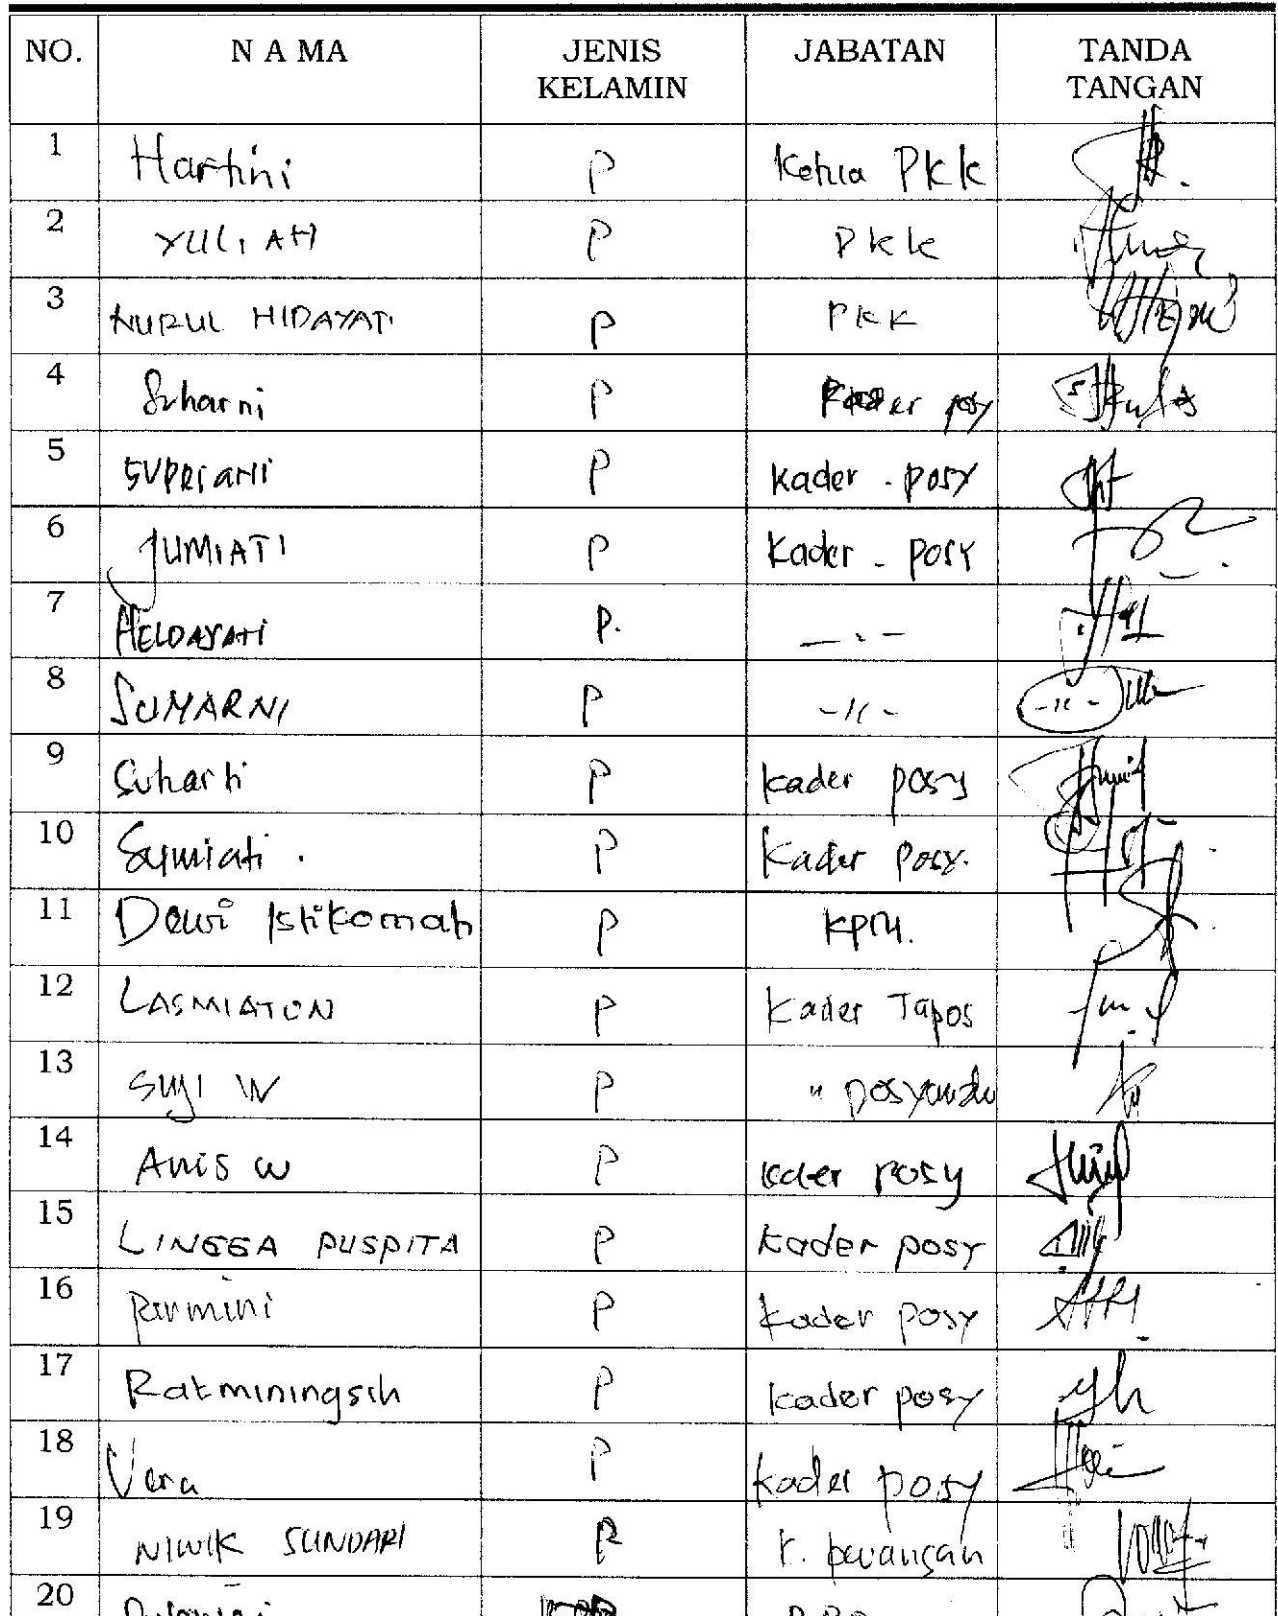 NO. N A M A JENIS KELAMIN JABATAN TANDA TANGAN
1 Hartini P Ketua PKK
2 YULIAH P PKK
3 NURUL HIDAYATI P PKK
4 Suharni P Kader posy
5 SUPRIANI P Kader - posy
6 JUMIATI P Kader - posy
7 HELDAYATI P. — . —
8 SUMARNI P -//-
9 Suharti P Kader posy
10 Sumiati . P Kader Posy.
11 Dewi Istikomah P KPM.
12 LASMIATUN P Kader Tapos
13 SUJI W P " posyandu
14 Anis W P kader posy
15 LINGGA PUSPITA P kader posy
16 Parmini P kader posy
17 Ratminingsih P kader posy
18 Vera P kader posy
19 NIWIK SUNDARI P
20